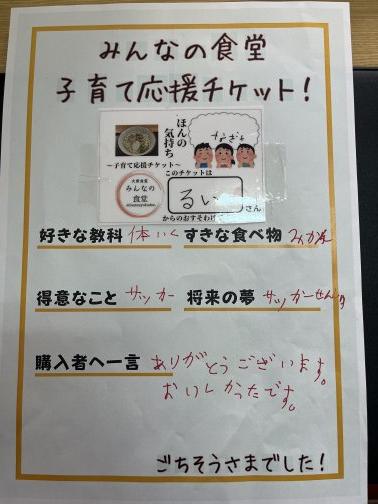 みんなの食堂
子育て応援チケット!
ほんの
気持ち
～子育て応援チケット～
このチケットは
みんなの
食堂
るい
さん
からのおすそわけ
好きな教科 体いく すきな食べ物
得意なこと サッカー 将来の夢 サッカーせん手
購入者へ一言 ありがとうございます。
おいしかったです。
ごちそうさまでした!